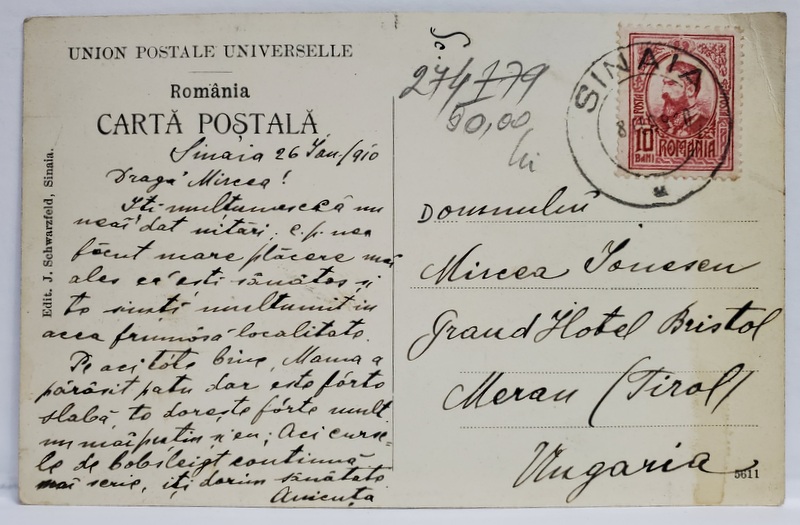 UNION POSTALE UNIVERSELLE
România
CARTĂ POȘTALĂ
Edit. J. Schwarzfeld, Sinaia.
274779
50,00
lei
SINAIA
10
BANI
ROMANIA
Sinaia 26 Ian./910
Dragă Mircea!
Iți multumescă nu
m'ai dat uitări; c.p. mea
făcut mare plăcere mai
ales că ești sănătos și
te simți multumit in
acea frumósă localitate.
Pe aci tóte bine, Mama a
părăsit patu dar este fórte
slabă, te dorește fórte mult
nu mai puțin și eu; Aci curse-
le de bobsleigt continuă
mai serie, iți dorim sănătate
Anicuța
Domnului
Mircea Ionescu
Grand Hotel Bristol
Meran (Tirol)
Ungaria
5611